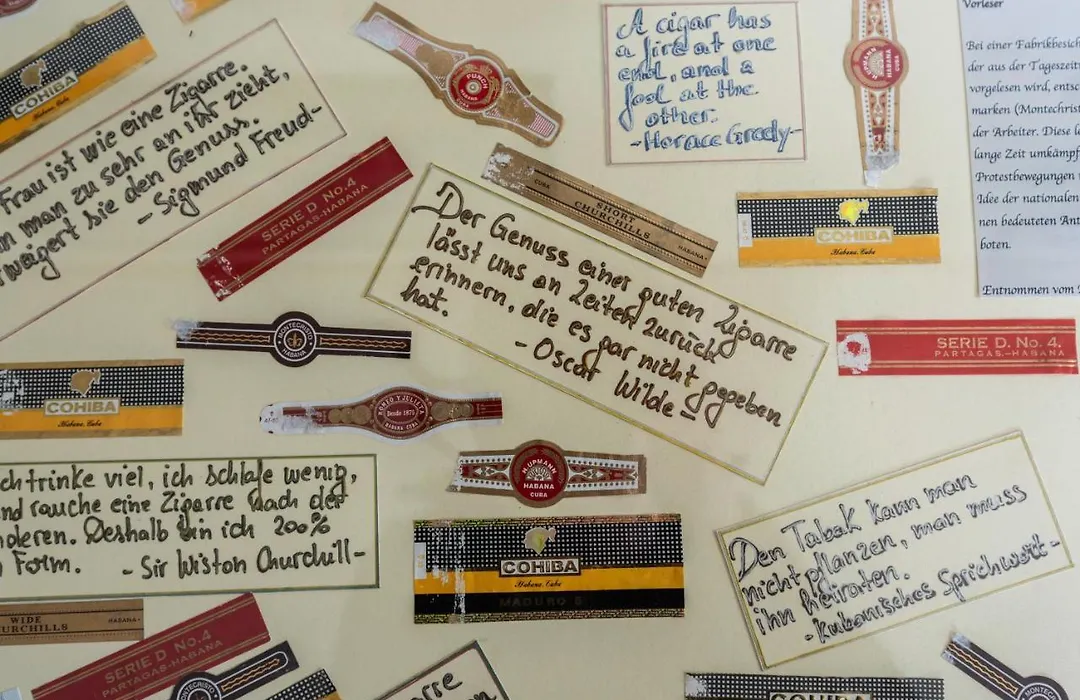 COHIBA
Frau ist wie eine Zigarre.
man zu sehr an ihr zieht,
sie den Genuss.
- Sigmund Freud-
PUNCH
A cigar has
a fire at one
end, and a
fool at the
other.
- Horace Grady-
H. UPMANN
HABANA
CUBA
Vorleser
Bei einer Fabrikbesich
der aus der Tageszeit
vorgelesen wird, entsc
marken (Montechrist
der Arbeiter. Diese l
lange Zeit umkämpf
Protestbewegungen
Idee der nationalen
nen bedeuteten Ant
boten.
Entnommen vom
SERIE D No. 4
PARTAGAS-HABANA
CUBA
SHORT
CHURCHILLS
HABANA
COHIBA
Habana, Cuba
Der Genuss einer guten Zigarre
lässt uns an Zeiten zurück
erinnern, die es gar nicht gegeben
hat.
- Oscar Wilde -
MONTECRISTO
HABANA
SERIE D No. 4.
PARTAGAS.-HABANA
COHIBA
Habana, Cuba
Y JULIETA
Desde 1875
HABANA CUBA
ch trinke viel, ich schlafe wenig,
nd rauche eine Zigarre nach der
nderen. Deshalb bin ich 200%
Form.
- Sir Wiston Churchill-
H. UPMANN
HABANA
CUBA
COHIBA
Habana, Cuba
MADURO 5
Den Tabak kann man
nicht pflanzen, man muss
ihn heiraten.
- Kubanisches Sprichwort -
WIDE
URCHILLS
HABANA
SERIE D No. 4
PARTAGAS-HABANA
MONTECRISTO
COHIBA
MONTECRISTO